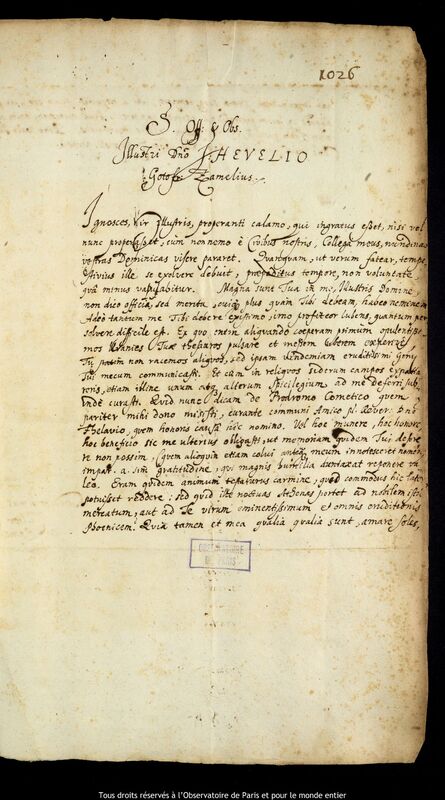 1026
S. Off: & Obs.
Illustri Dno J. HEVELIO
Gotofr. Zamelius.
Ignosces, Vir Illustris, properanti calamo, qui ingratus esset, nisi vel
nunc properasset, cum nonnemo è Civibus nostris, Collega meus, nundinas
vestras Dominicas visere pararet. Quanquam, ut verum fatear, tempe-
stivius ille se exolvere debuit,
quâ minus Magna sunt Tua in me, Illustris Domine,
non dico officia, sed merita, cuiq plus quàm Tibi debeam, habeo neminem.
Adeo tantum me Tibi debere existimo, imo profiteor lubens, quantum per-
solvere difficile est. Ex quo enim aliquando coeperam primùm opulentissi-
mos Tuæ thesauros pulsare et
Tu non racemos aliquos, sed ipsam vindemiam eruditissimi Genij
Tui mecum communicasti. Et cum in reliquos siderum campos
reris, etiam illinc unum atq alterum spicilegium ad me deferri sub-
inde curasti. Quid nunc dicam de Prodromo Cometico quem
pariter mihi dono misisti, curante communi Amico
honoris causâ hîc nomino. Vel hoc munere, hoc honore,
hoc beneficio sic me ulterius obligasti, ut memoriam quidem Tui depone-
re non possim, quem alioquin etiam colui antequam meum innotesceret nomen,
gratitudine, qui magnis duntaxat reponere va-
leo. Eram quidem animum testaturus carmine, quod commodus hîc
potuisset reddere: sed quid istæ noctuas Athenas portet ad nobilem
mereatur, aut ad Te virum eminentissimum et omnis eruditionis
phoenicem? Quia tamen et mea qualia qualia sunt, amare soles,
OBSERVATOIRE
DE PARIS
Tous droits réservés à l'Observatoire de Paris et pour le monde entier